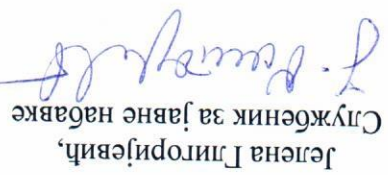 Јелена Глигоријевић,
Службеник за јавне набавке